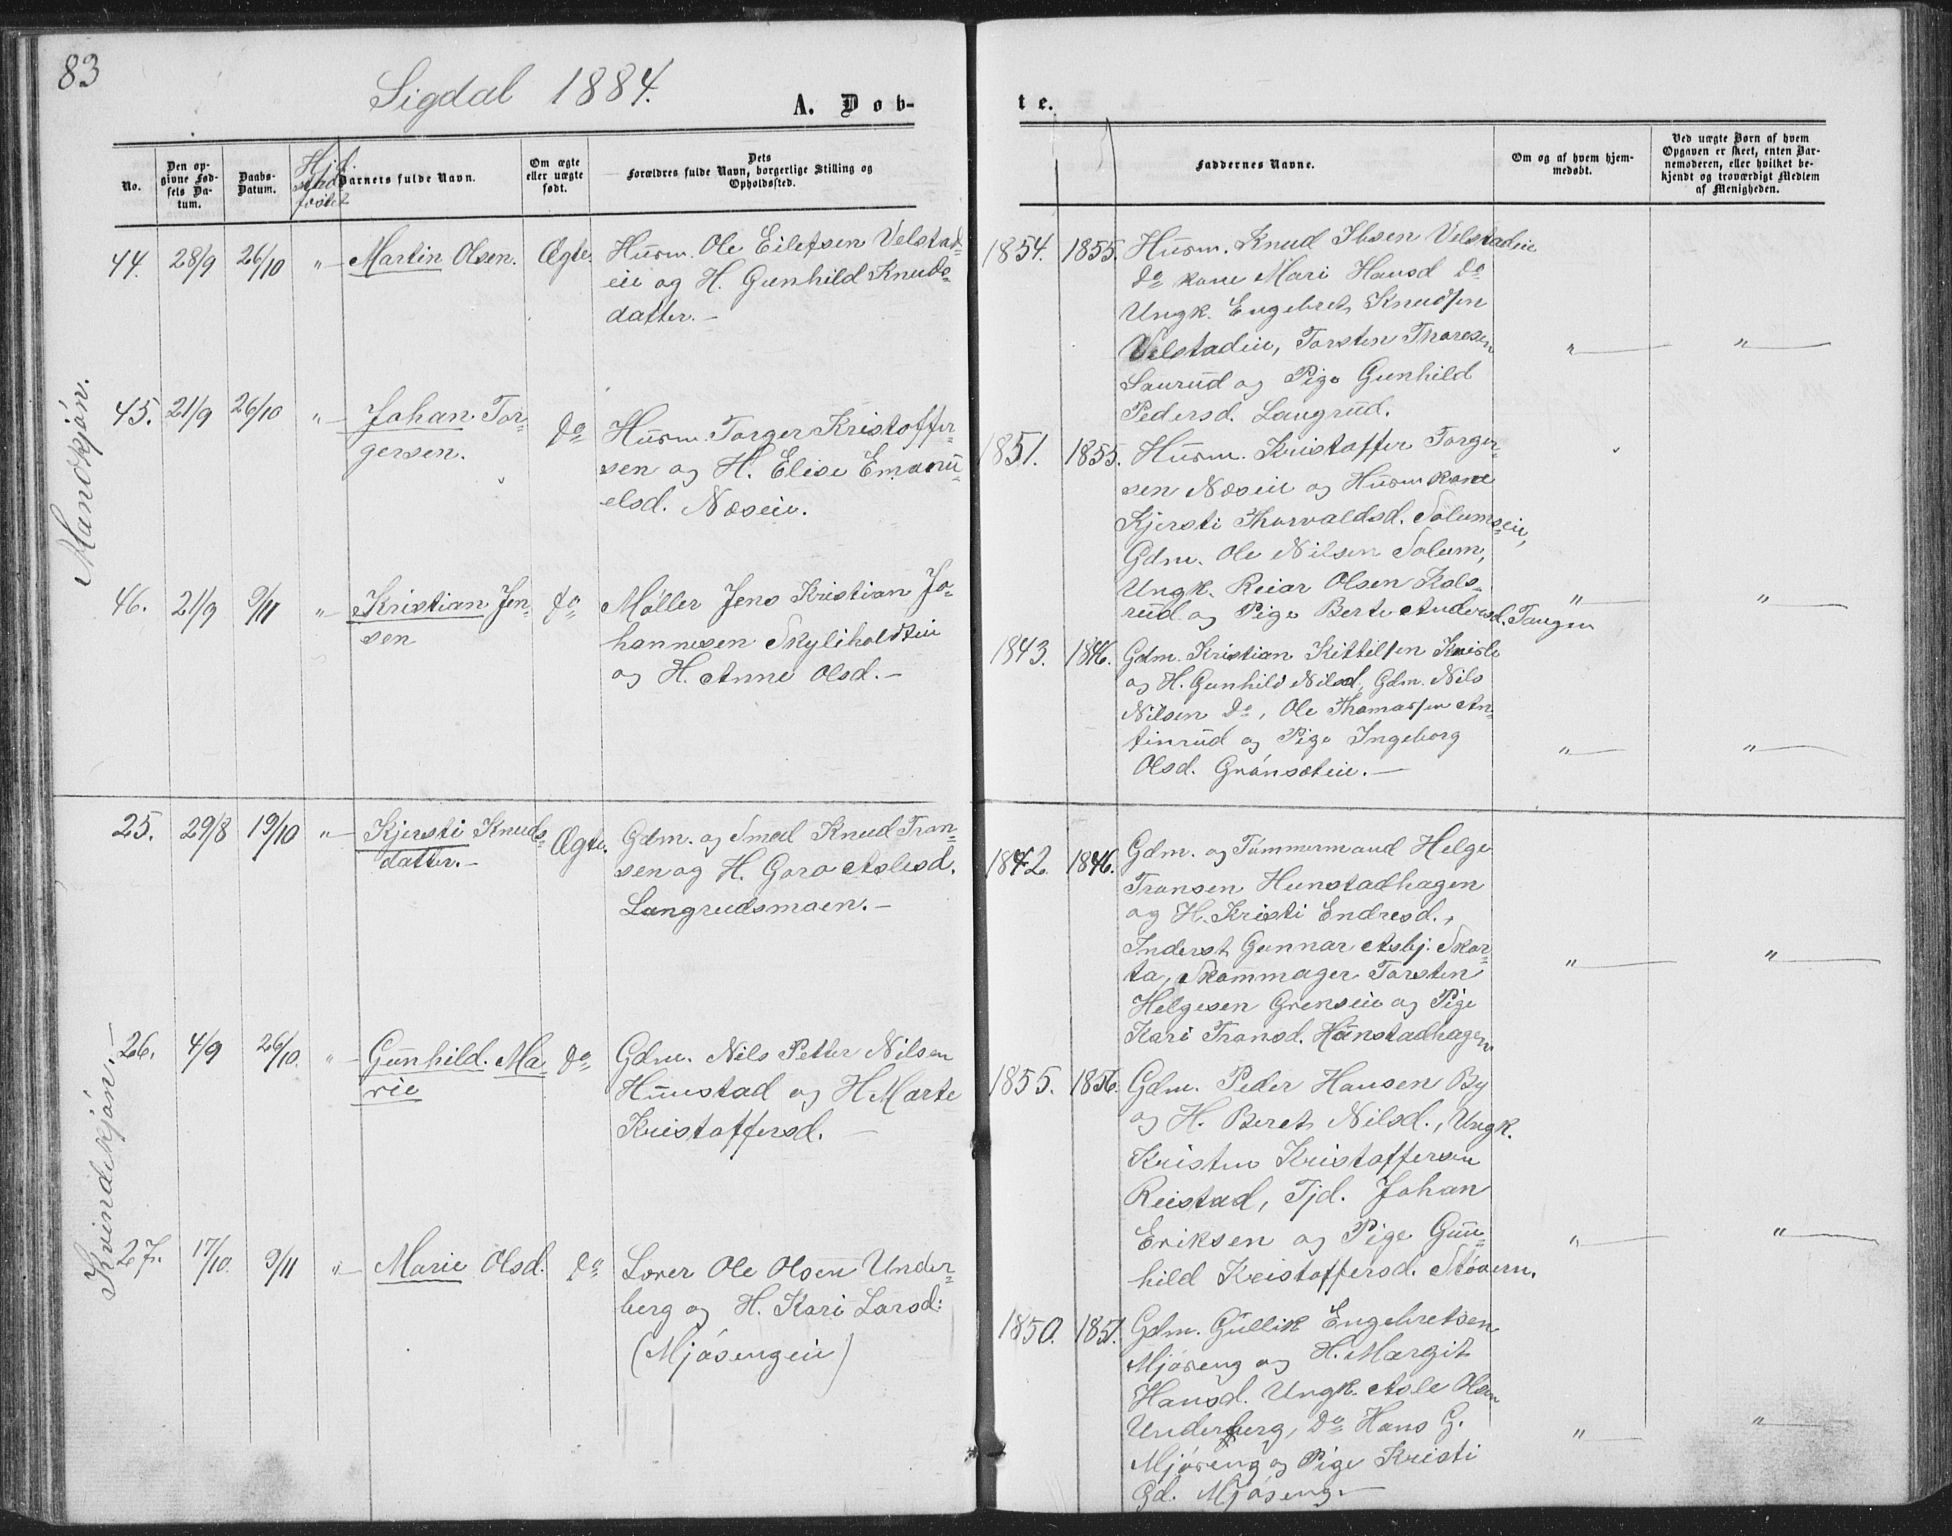 83
Sigdal 1884.
A. Dob-
te.
No.
Den opgivne Fødsels Datum.
Daabs-Datum.
Barnets fulde Navn.
Om ægte eller uægte født.
Dets Forældres fulde Navn, borgerlige Stilling og Opholdssted.
Faddernes Navne.
Om og af hvem hjemmedøbt.
Ved uægte Børn af hvem Opgaven er skeet, enten Barnemoderen, eller hvilket bekjendt og troværdigt Medlem af Menigheden.
Mandkjön.
44. 28/9 26/10 " Martin Olsen. Ægte.
Husm. Ole Eilefsen Velstad-
eie og H. Gunhild Knuds-
datter.-
1854. 1855.
Husm. Knud Ibsen Velstadeie
do kone Mari Hansd do
Ungk. Engebret Knudsen
Velstadeie, Torsten Thoresen
Laurud og Pige Gunhild
Pedersd. Langrud.
" "
45. 21/9 26/10 " Johan Tor-
gersen.
do
Husm. Torger Kristoffer-
sen og H. Elise Emanu-
elsd. Næseie.
1851. 1855.
Husm. Kristoffer Torger-
sen Næseie og Husmkone
Kjersti Thorvaldsd. Solumseie,
Gdm. Ole Nilsen Solum,
Ungk. Reiar Olsen Kols-
rud og Pige Berte Andersd. Tangen
" "
46. 21/9 9/11 " Kristian Jen-
sen
do
Møller Jens Kristian Jo-
hannesen Skyliholdteie
og H. Anne Olsd.-
1843. 1846.
Gdm. Kristian Kittelsen Knisle
og H. Gunhild Nilsd, Gdm. Nils
Nilsen do, Ole Thomassen An-
finrud og Pige Ingeborg
Olsd. Grönsæteie.-
" "
Kvindekjön.-
25. 29/8 19/10 " Kjersti Knuds-
datter.-
Ægte.
Gdm. og Smed Knud Tran-
sen og H. Goro Aslesd.
Langrudsmoen.-
1842. 1846.
Gdm. og Tømmermand Helge
Transen Hunstadhagen
og H. Kristi Endresd.,
Inderst Gunnar Asbj. Skar-
ta, Skommager Torsten
Helgesen Grenseie og Pige
Kari Transd. Hunstadhagen
" "
26. 4/9 26/10. " Gunhild Ma-
rie
do
Gdm. Nils Petter Nilsen
Hunstad og H Marte
Kristoffersd.-
1855. 1856.
Gdm. Peder Hansen By
og H. Beret Nilsd., Ungk.
Kristen Kristoffersen
Reistad, Tjd. Johan
Eriksen og Pige Gun-
hild Kristoffersd. Støvern.
" "
27. 17/10. 9/11 " Marie Olsd. do
Lærer Ole Olsen Under-
berg og H. Kari Larsd:
(Mjøsengeie)
1850. 1851.
Gdm. Gullik Engebretsen
Mjøseng og H. Margit
Hansd. Ungk. Asle Olsen
Underberg, do Hans G.
Mjøseng og Pige Kristi
Gd. Mjøseng.-
" "